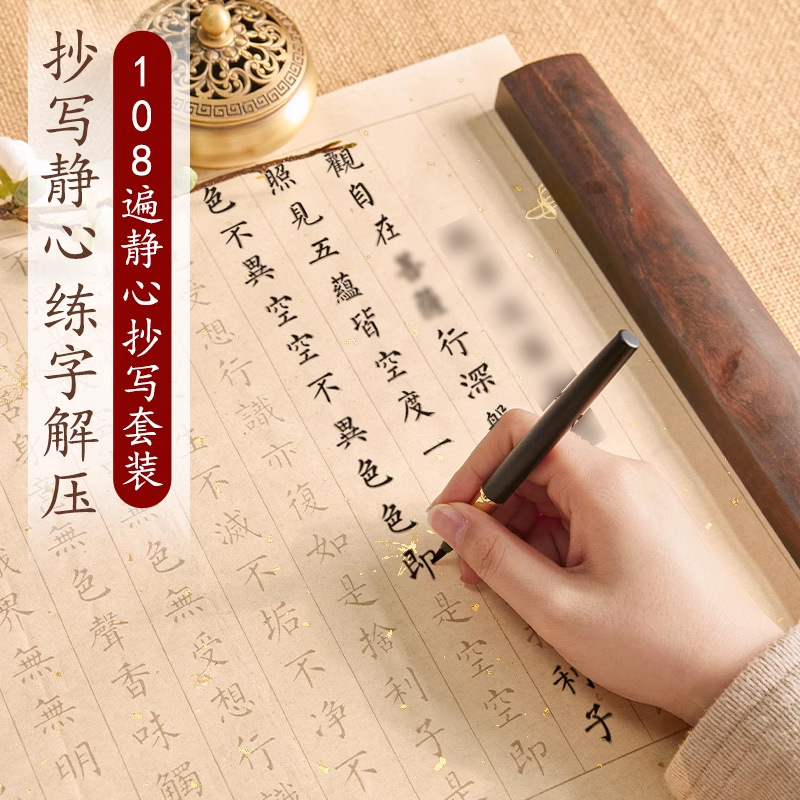 抄写静心 练字解压
108遍静心抄写套装
觀自在
行深
利子
照見五蘊皆空度一
色不異空空不異色色即是空空即
受想行識亦復如是捨利子是
不滅不垢不淨不
色無受想行
無色聲香味觸
界無無明